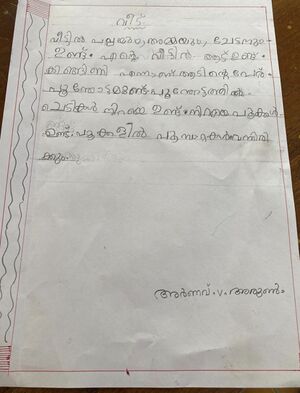 വീട്
വീട്ടിൽ പപ്പയും, അമ്മയും, ചേട്ടനും
ഉണ്ട്. എന്റെ വീട്ടിൽ ആട് ഉണ്ട്
കിങ്ങിണി എന്നാണ് ആടിന്റെ പേര്.
പൂന്തോട്ടമുണ്ട് പൂന്തോട്ടത്തിൽ
ചെടികൾ നിറയെ ഉണ്ട്. നിറയെ പൂക്കൾ
ഉണ്ട്. പൂക്കളിൽ പൂമ്പാറ്റകൾ വന്നിരി
ക്കും
അർണവ്. v. അരുൺ.